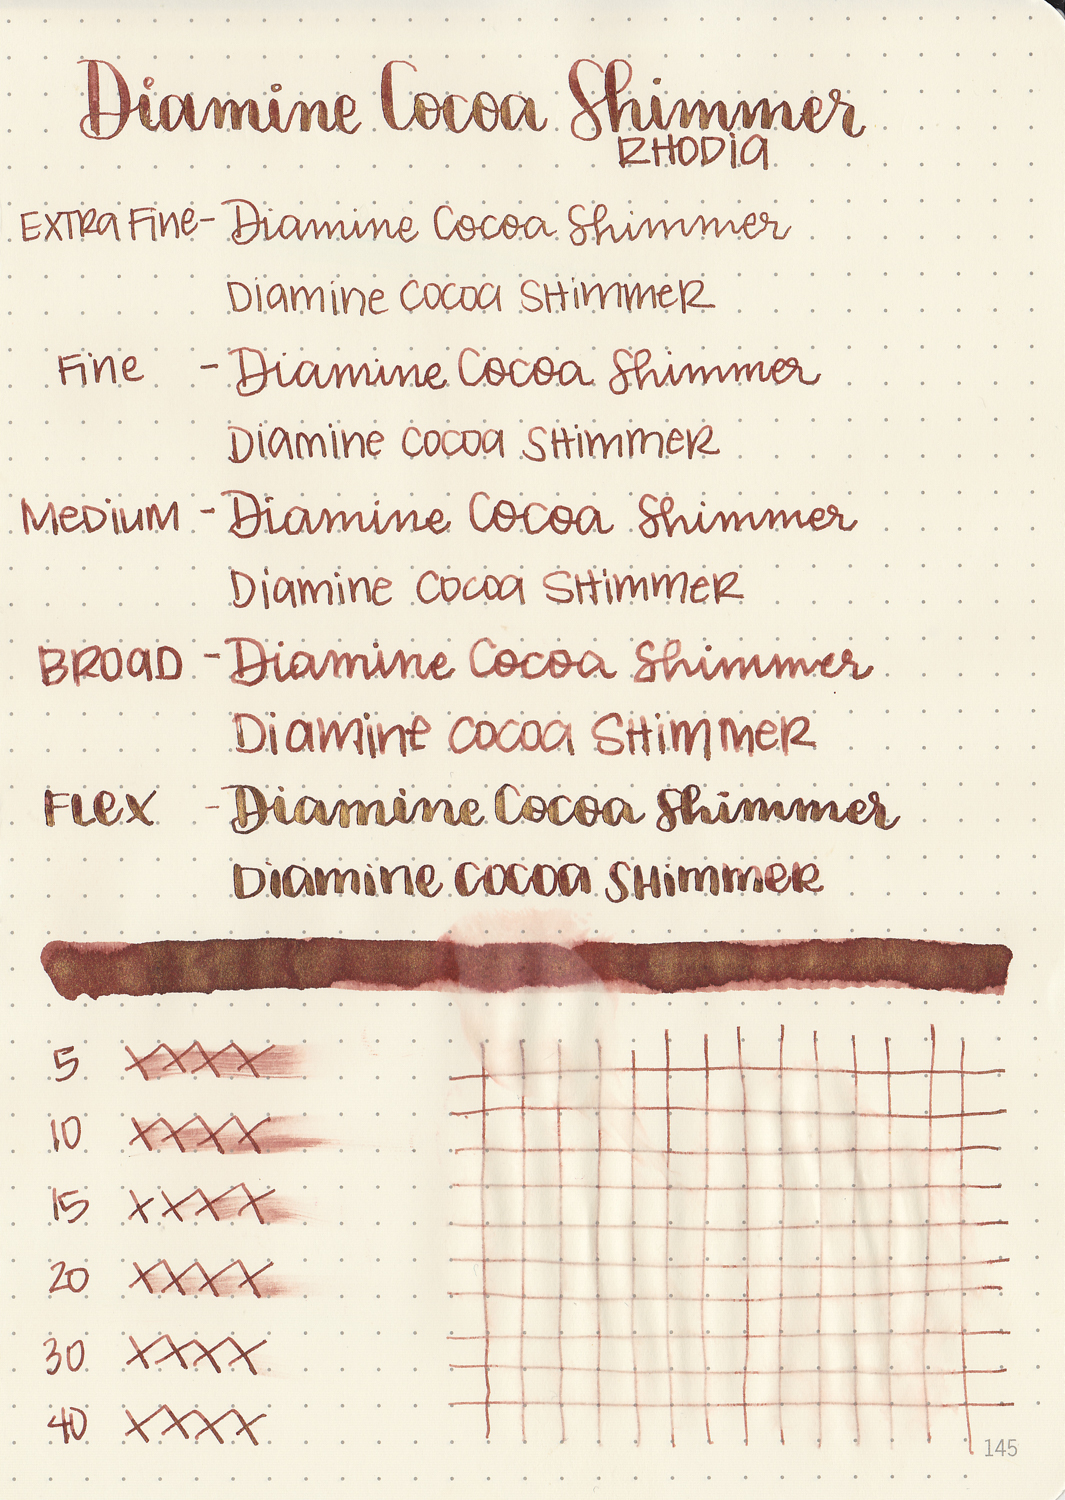 Diamine Cocoa Shimmer
RHODIA
EXTRA Fine - Diamine Cocoa Shimmer
Diamine Cocoa SHimmeR
Fine - Diamine Cocoa Shimmer
Diamine Cocoa SHimmeR
MeDiuM - Diamine Cocoa Shimmer
Diamine Cocoa SHimmeR
BROAD - Diamine Cocoa Shimmer
Diamine Cocoa SHimmeR
FLex - Diamine Cocoa Shimmer
Diamine Cocoa SHimmeR
5 XXXX
10 XXXX
15 XXXX
20 XXXX
30 XXXX
40 XXXX
145